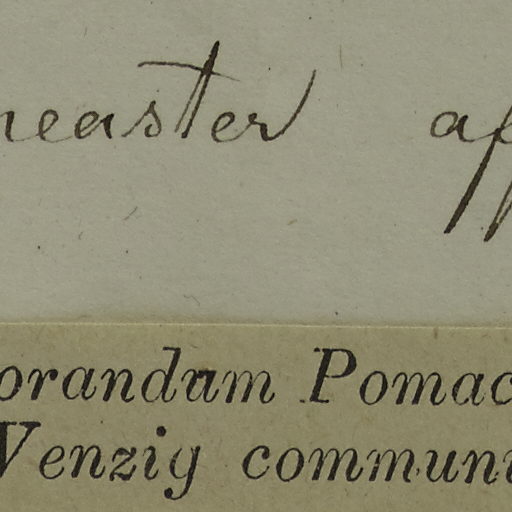 neaster af
orandum Pomac
Wenzig commun